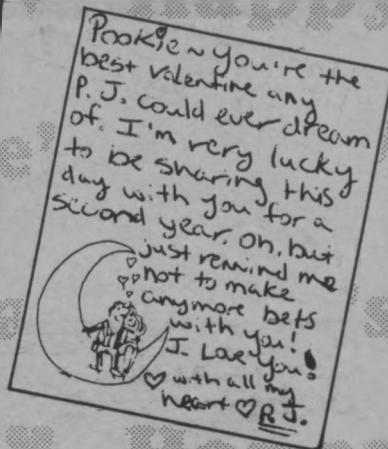 Pookie ~ You're the
best valentine any
P. J. could ever dream
of. I'm very lucky
to be sharing this
day with you for a
second year. Oh, but
just remind me
not to make
anymore bets
with you!
I Love You!
♡ with all my
heart ♡ P. J.